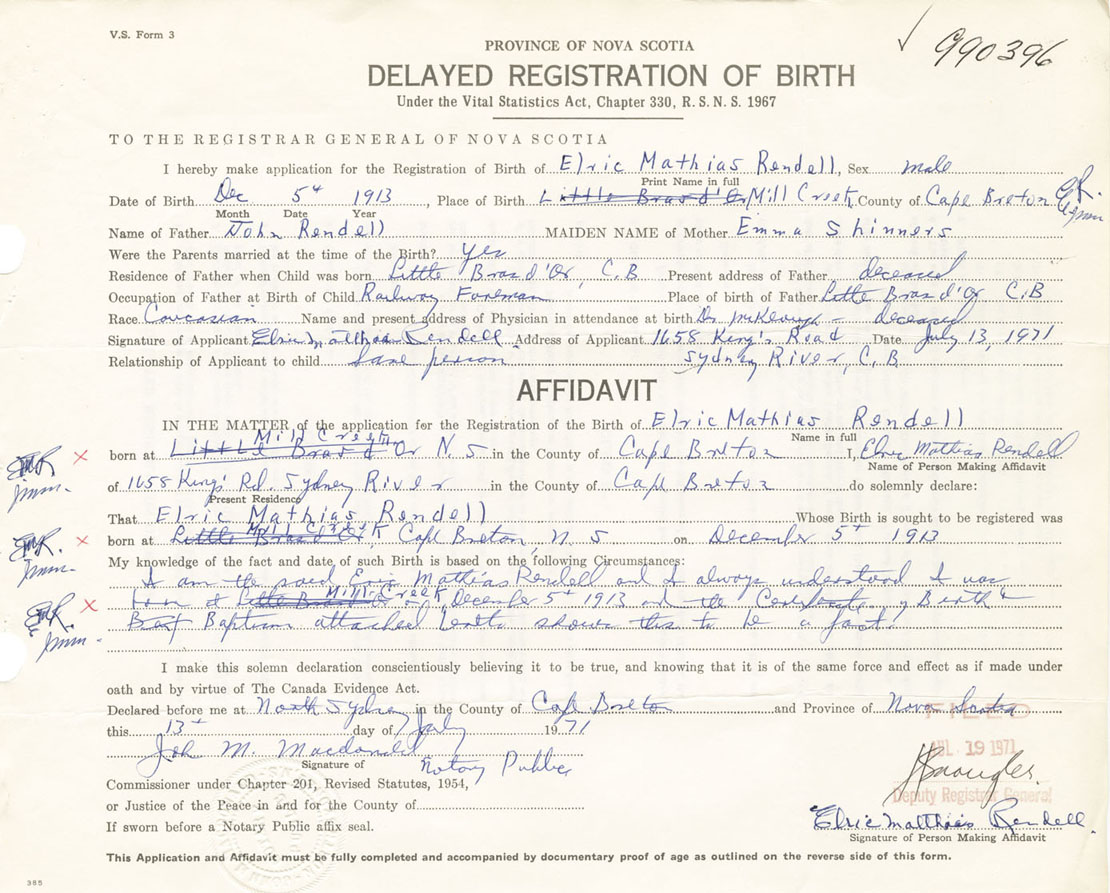 V.S. Form 3
990396
PROVINCE OF NOVA SCOTIA
DELAYED REGISTRATION OF BIRTH
Under the Vital Statistics Act, Chapter 330, R. S. N. S. 1967
TO THE REGISTRAR GENERAL OF NOVA SCOTIA
I hereby make application for the Registration of Birth of Elric Mathias Rendell, Sex male
Print Name in full
Date of Birth Dec 5th 1913, Place of Birth Little Bras d'Or Mill Creek County of Cape Breton
Month Date Year
Name of Father John Rendell MAIDEN NAME of Mother Emma Shinners
Were the Parents married at the time of the Birth? yes
Residence of Father when Child was born Little Bras d'Or, C.B Present address of Father deceased
Occupation of Father at Birth of Child Railway Foreman Place of birth of Father Little Bras d'Or C.B
Race Caucasian Name and present address of Physician in attendance at birth Dr McKeough - deceased
Signature of Applicant Elric Matthias Rendell Address of Applicant 1658 King's Road Date July 13, 1971
Relationship of Applicant to child same person Sydney River, C.B
AFFIDAVIT
IN THE MATTER of the application for the Registration of the Birth of Elric Mathias Rendell
Mill Creek Name in full
born at Little Bras d Or N.S in the County of Cape Breton I, Elric Mathias Rendell
Name of Person Making Affidavit
of 1658 King's Rd. Sydney River in the County of Cape Breton do solemnly declare:
Present Residence
That Elric Mathias Rendell Whose Birth is sought to be registered was
Mill Creek
born at Little Bras d'Or, Cape Breton, N.S on December 5th 1913
My knowledge of the fact and date of such Birth is based on the following Circumstances:
I am the said Elric Mathias Rendell and I always understood I was
born at Little Bras d'Or Mill Creek on December 5th 1913 and the Certificate of Birth &
Baptism attached hereto shows this to be a fact.
I make this solemn declaration conscientiously believing it to be true, and knowing that it is of the same force and effect as if made under
oath and by virtue of The Canada Evidence Act.
Declared before me at North Sydney in the County of Cape Breton and Province of Nova Scotia
this 13th day of July 1971
FILED
JUL 19 1971
John M. Macdonald
Signature of Notary Public
Commissioner under Chapter 201, Revised Statutes, 1954,
Deputy Registrar General
or Justice of the Peace in and for the County of
Elric Matthias Rendell
If sworn before a Notary Public affix seal.
Signature of Person Making Affidavit
This Application and Affidavit must be fully completed and accompanied by documentary proof of age as outlined on the reverse side of this form.
365